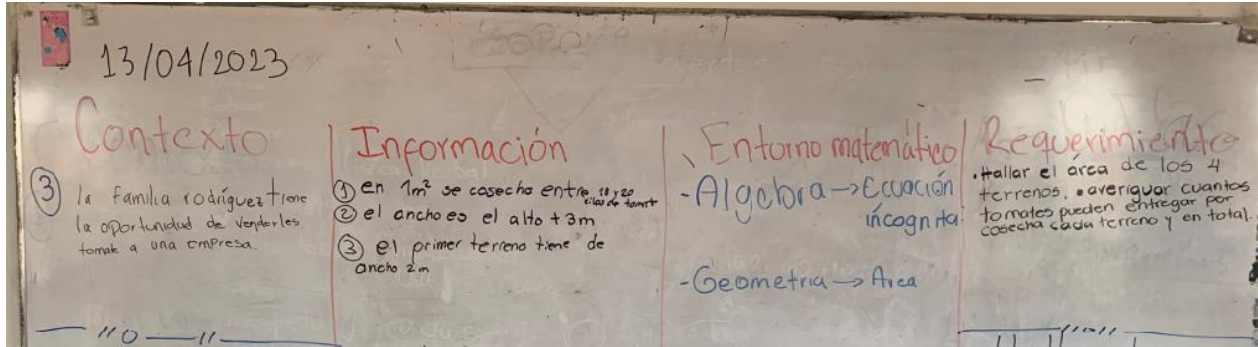 13/04/2023
Contexto
③ la familia rodríguez tiene
la oportunidad de venderles
tomate a una empresa.
Información
① en 1m² se cosecha entre 18 y 20
kilos de tomate
② el ancho es el alto + 3m
③ el primer terreno tiene de
ancho 2m
Entorno matemático
- Algebra → Ecuación
incognita
- Geometria → Area
Requerimiento
. Hallar el área de los 4
terrenos. • averiguar cuantos
tomates pueden entregar por
cosecha cada terreno y en total.